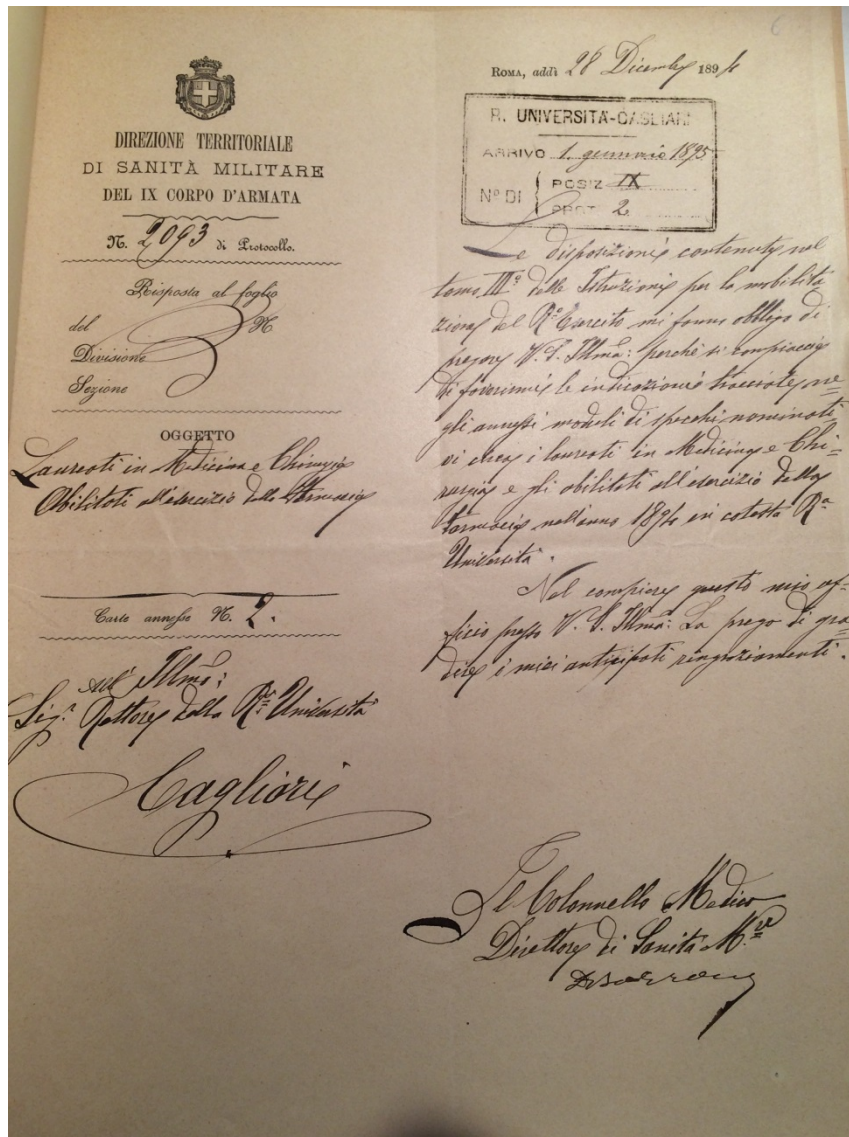 6
DIREZIONE TERRITORIALE
DI SANITÀ MILITARE
DEL IX CORPO D'ARMATA
N. 2093 di Protocollo.
Risposta al foglio
del N.
Divisione
Sezione
OGGETTO
Laureati in Medicina e Chirurgia
Abilitati all'esercizio della Farmacia
Carte annesse N. 2.
All' Illmo:
Sig.r Rettore della Ra Università
Cagliari
ROMA, addì 28 Dicembre 1894
R. UNIVERSITÀ-CAGLIARI
ARRIVO 1. gennaio 1895
N° DI
POSIZ IX
PROT 2
Le disposizioni contenute nel
tomo III° delle Istruzioni per la mobilita-
zione del Ro Esercito mi fanno obbligo di
pregare V. S. Illma: perchè si compiaccia
di favorirmi le indicazioni tracciate ne-
gli annessi modelli di specchi nominati-
vi circa i laureati in Medicina e Chi-
rurgia e gli abilitati all'esercizio della
Farmacia nell'anno 1894 in cotesta Ra
Università.
Nel compiere questo mio uf-
ficio presso V. S. Illma: La prego di gra-
dire i miei anticipati ringraziamenti.
Il Colonnello Medico
Direttore di Sanità Mre